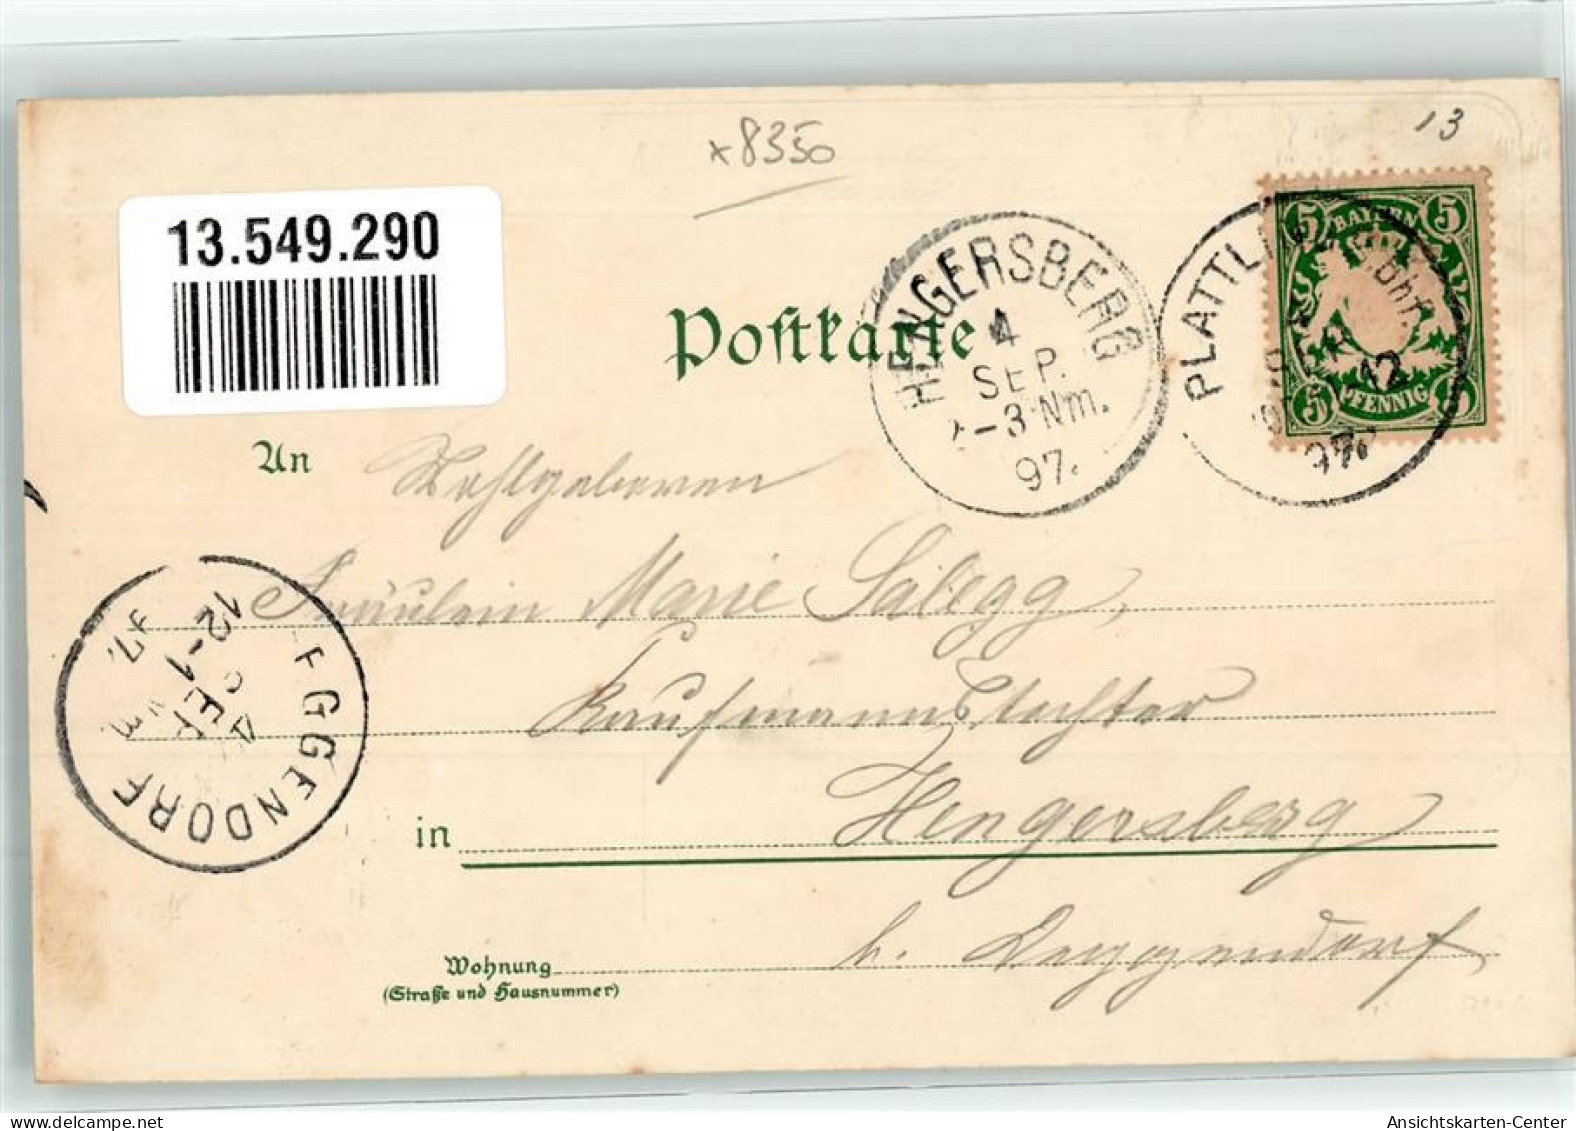 x8350
13
13.549.290
5 BAYERN 5
5 PFENNIG 5
HENGERSBERG
4
SEP.
2-3 Nm.
97.
PLATTLING Bhf.
12
97
Postkarte
An Wohlgeboren
Fräulein Marie Salegg,
Kaufmannstochter
in Hengersberg
b. Deggendorf
Wohnung
(Straße und Hausnummer)
DEGGENDORF
4
SEP
12-1
Nm
97.
www.delcampe.net
Ansichtskarten-Center